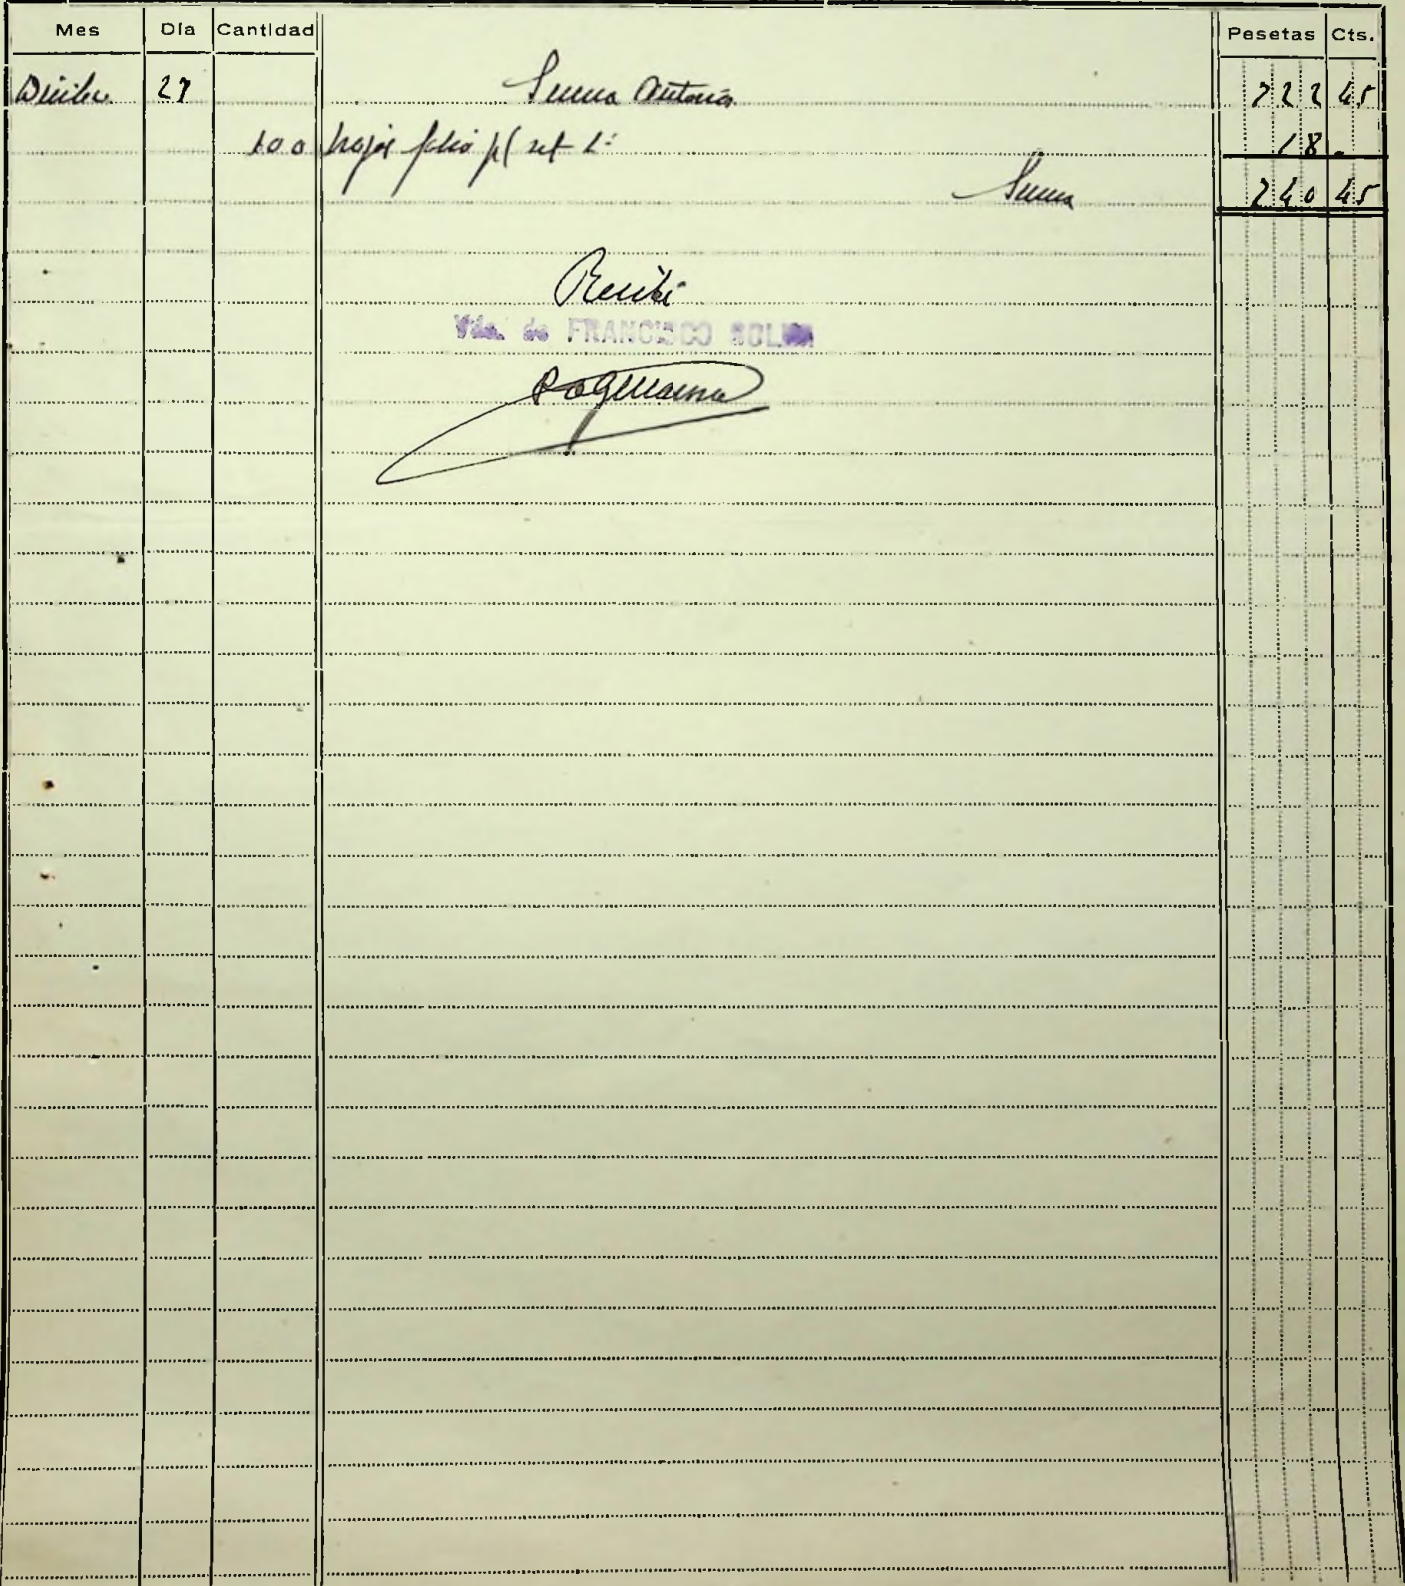 Mes Día Cantidad Pesetas Cts.
Dicibre 27 Suma anterior 222 45
100 hojas folio p/ 18 -
Suma 240 45
Recibí
Vda. de FRANCISCO SOLER